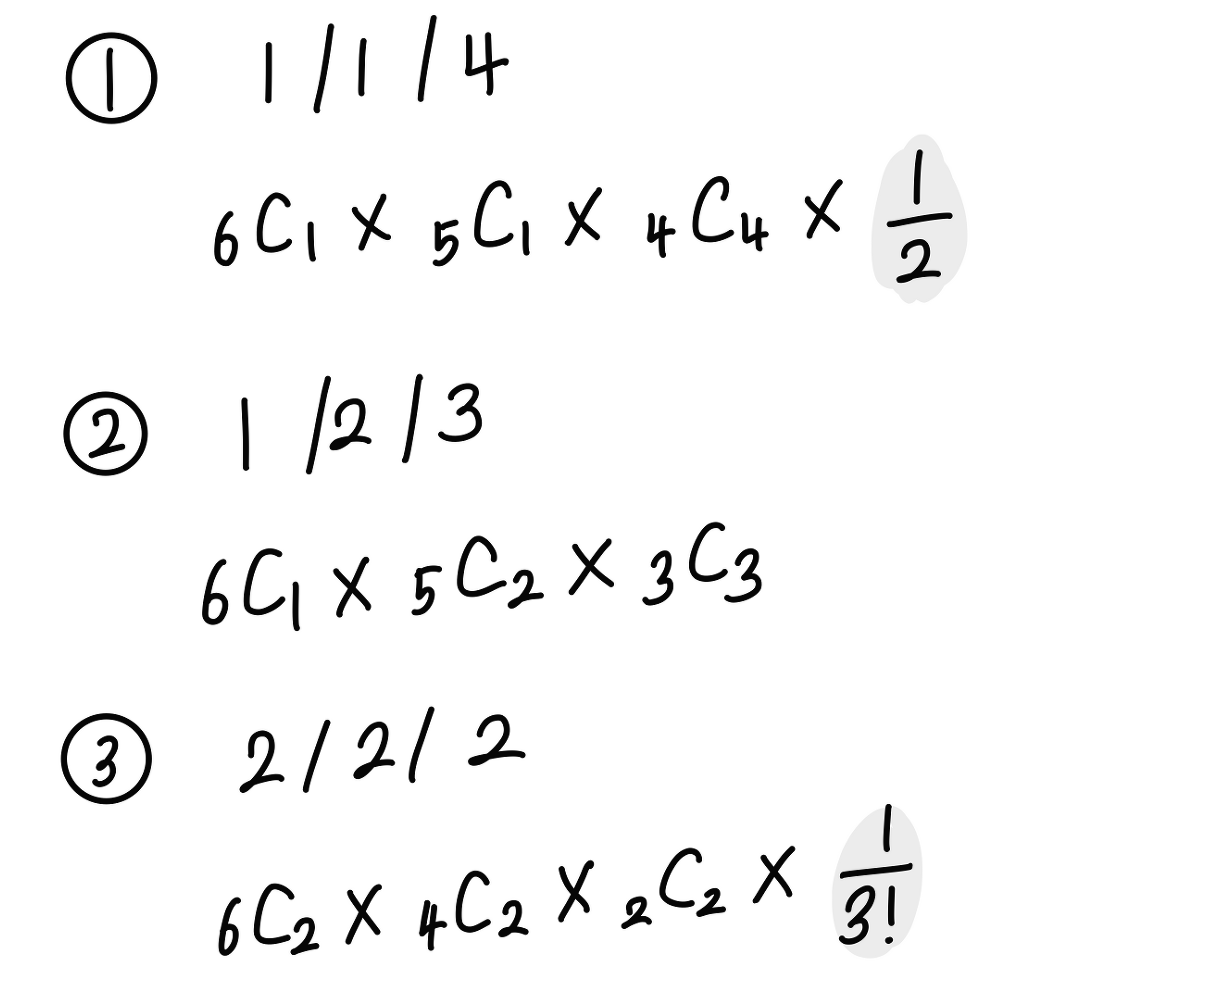 ① 1 / 1 / 4
₆C₁ × ₅C₁ × ₄C₄ × 1/2
② 1 / 2 / 3
₆C₁ × ₅C₂ × ₃C₃
③ 2 / 2 / 2
₆C₂ × ₄C₂ × ₂C₂ × 1/3!